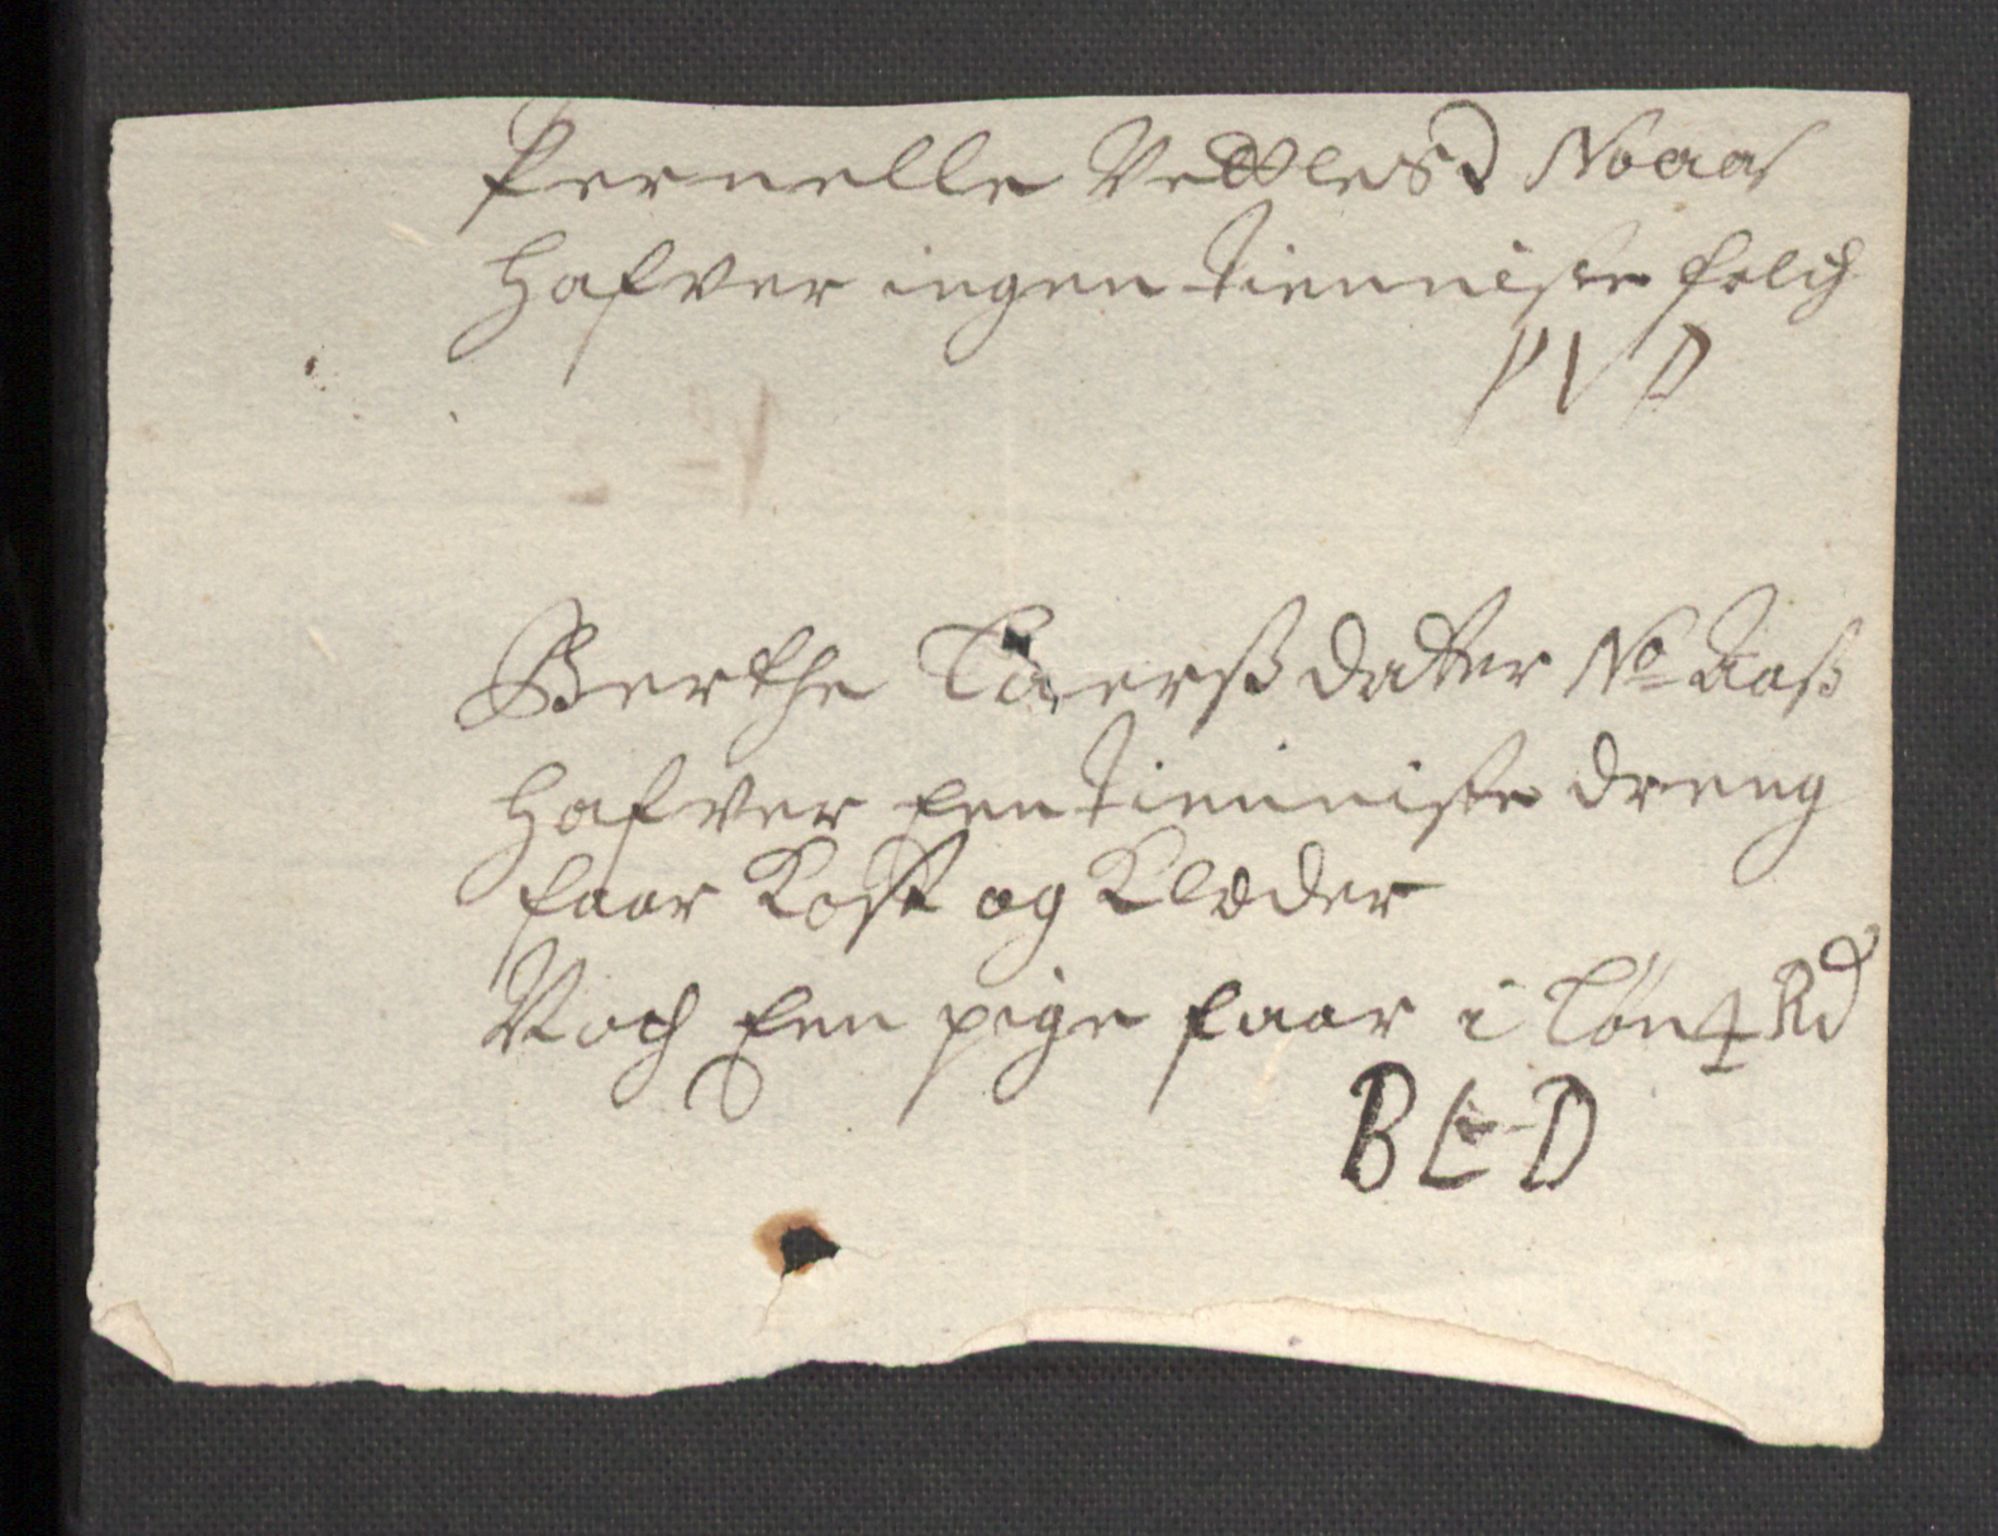 Pernelle VettlesD Noaas
Hafver ingen tienniste folch
PVD
Berthe Laerssdatter No Aass
Hafver een tienniste dreng
faar Kost og Klæder
Noch een pige faar i Løn 4 Rd
BLD